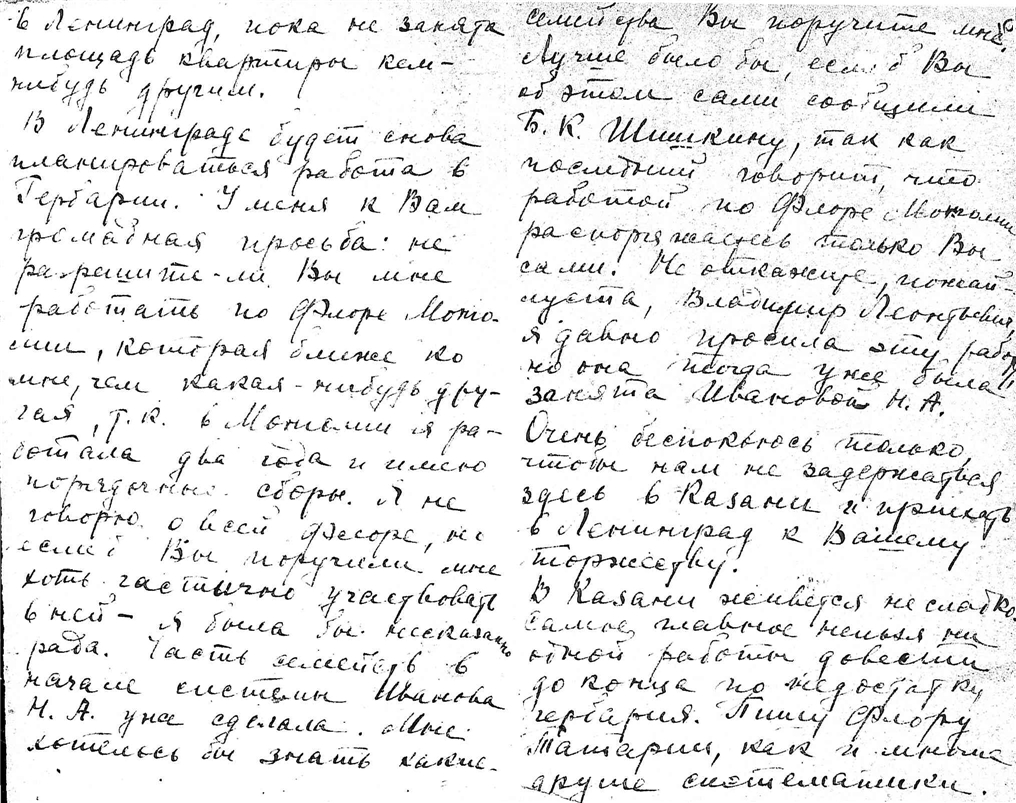 в Ленинград, пока не занята
площадь квартиры кем-
нибудь другим.
В Ленинграде будет снова
планироваться работа в
Гербарии. У меня к Вам
громадная просьба: не
разрешите-ли Вы мне
работать по Флоре Монго-
лии, которая ближе ко
мне, чем какая-нибудь дру-
гая, т.к. в Монголии я ра-
ботала два года и имею
порядочные сборы. Я не
говорю о всей флоре, но
если б Вы поручили мне
хоть частично участвовать
в ней - я была бы несказанно
рада. Часть семейств в
начале системы Иванова
Н. А. уже сделала. Мне
хотелось бы знать какие-
семейства Вы поручите мне.
Лучше было бы, если б Вы
об этом сами сообщили
Б. К. Шишкину, так как
последний говорит, что
работой по Флоре Монголии
распоряжаетесь только Вы
сами. Не откажите, пожай-
луста, Владимир Леонтьевич,
я давно просила эту работу,
но она тогда уже была
занята Ивановой Н. А.
Очень беспокоюсь только,
чтобы нам не задержаться
здесь в Казани и приехать
в Ленинград к Вашему
торжеству.
В Казани живется несладко.
Самое главное нельзя ни
одной работы довести
до конца по недостатку
гербария. Пишу Флору
Татарии, как и многие
другие систематики.